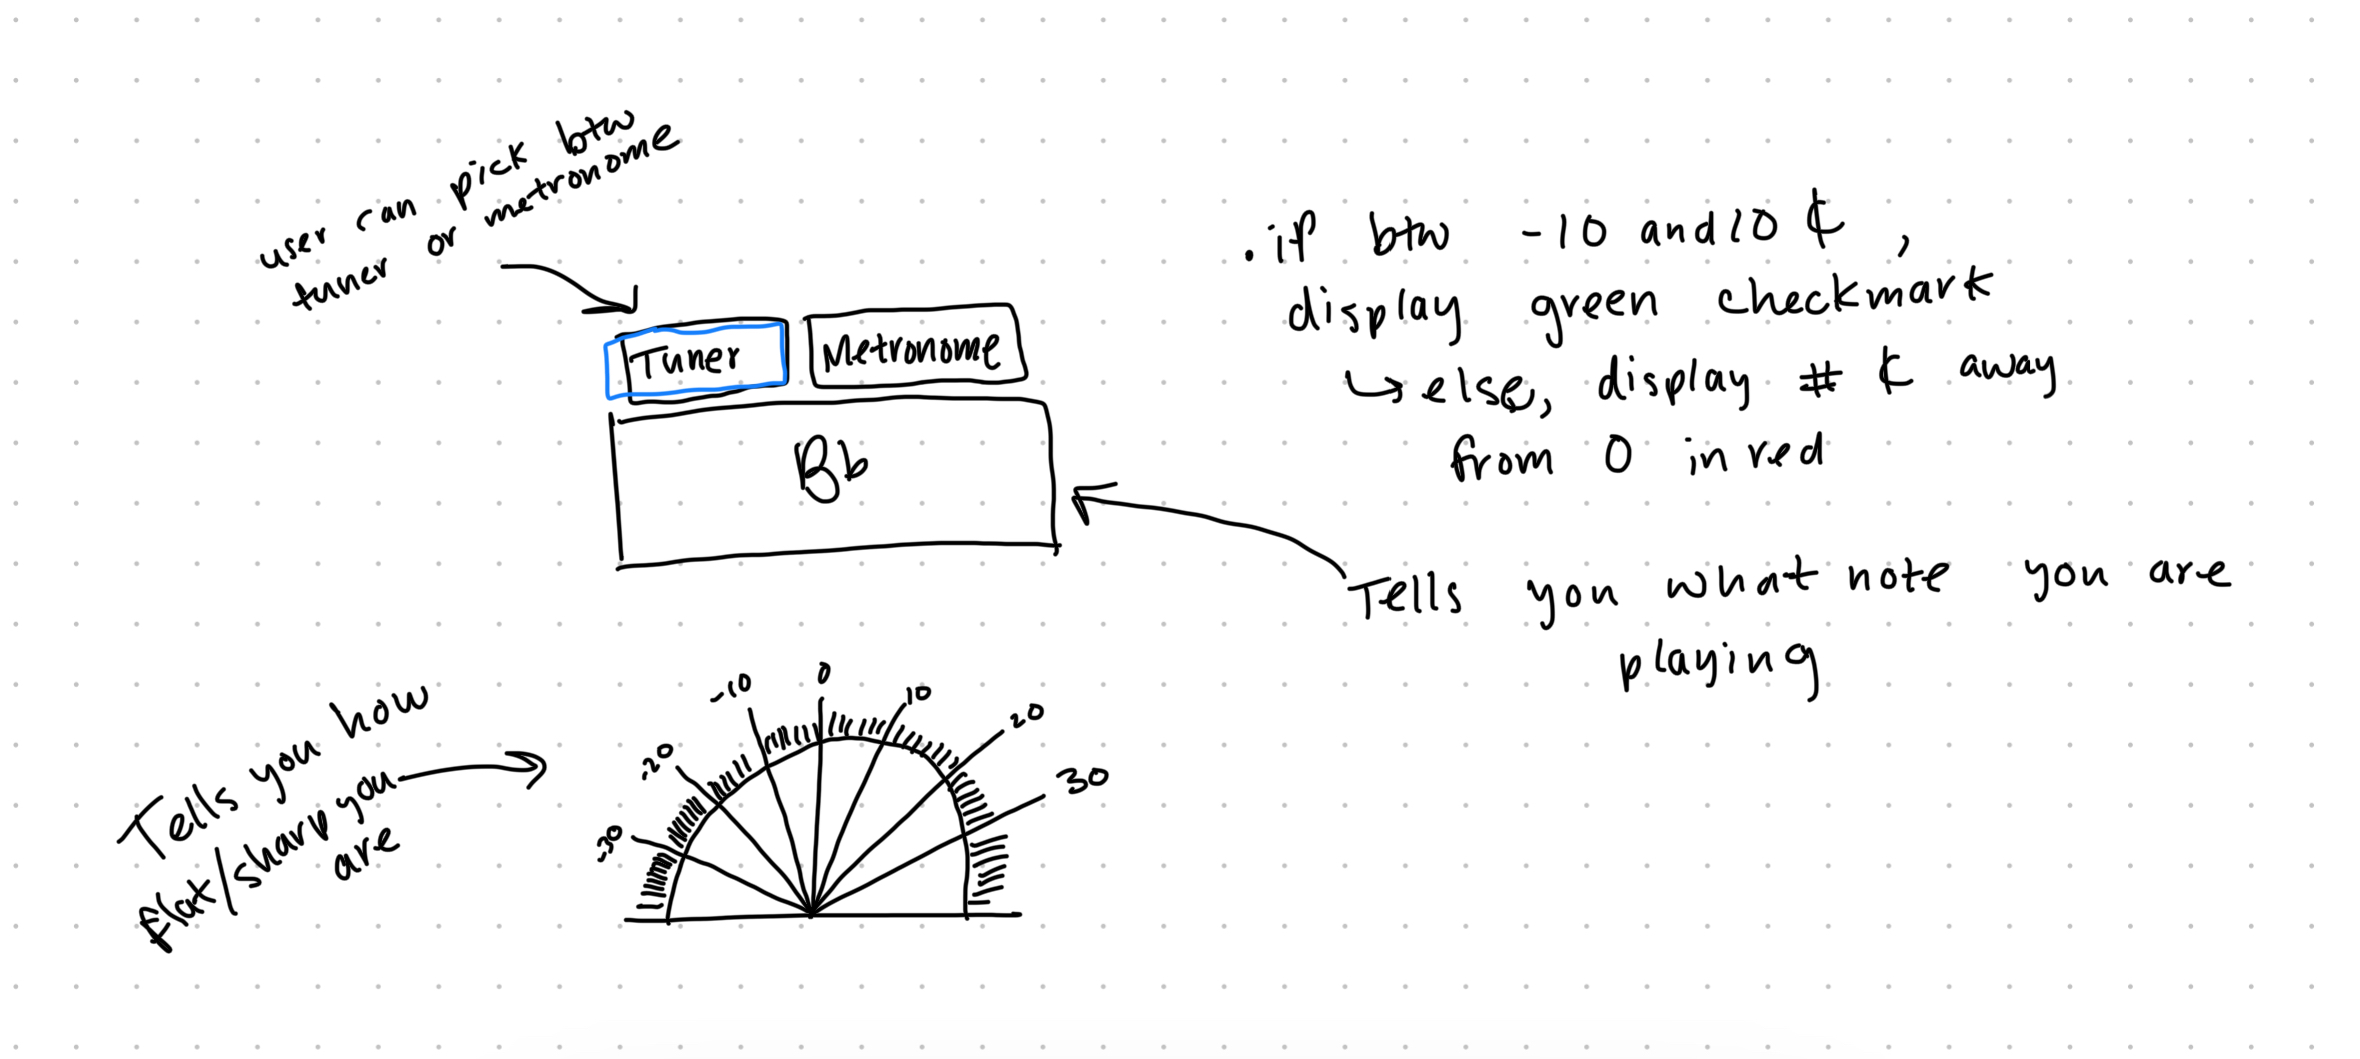 user can pick btw
tuner or metronome
Tuner
Metronome
Bb
• if btw -10 and 10 ¢,
display green checkmark
↳ else, display # ¢ away
from 0 in red
Tells you what note you are
playing
Tells you how
flat/sharp you
are
-30
-20
-10
0
10
20
30